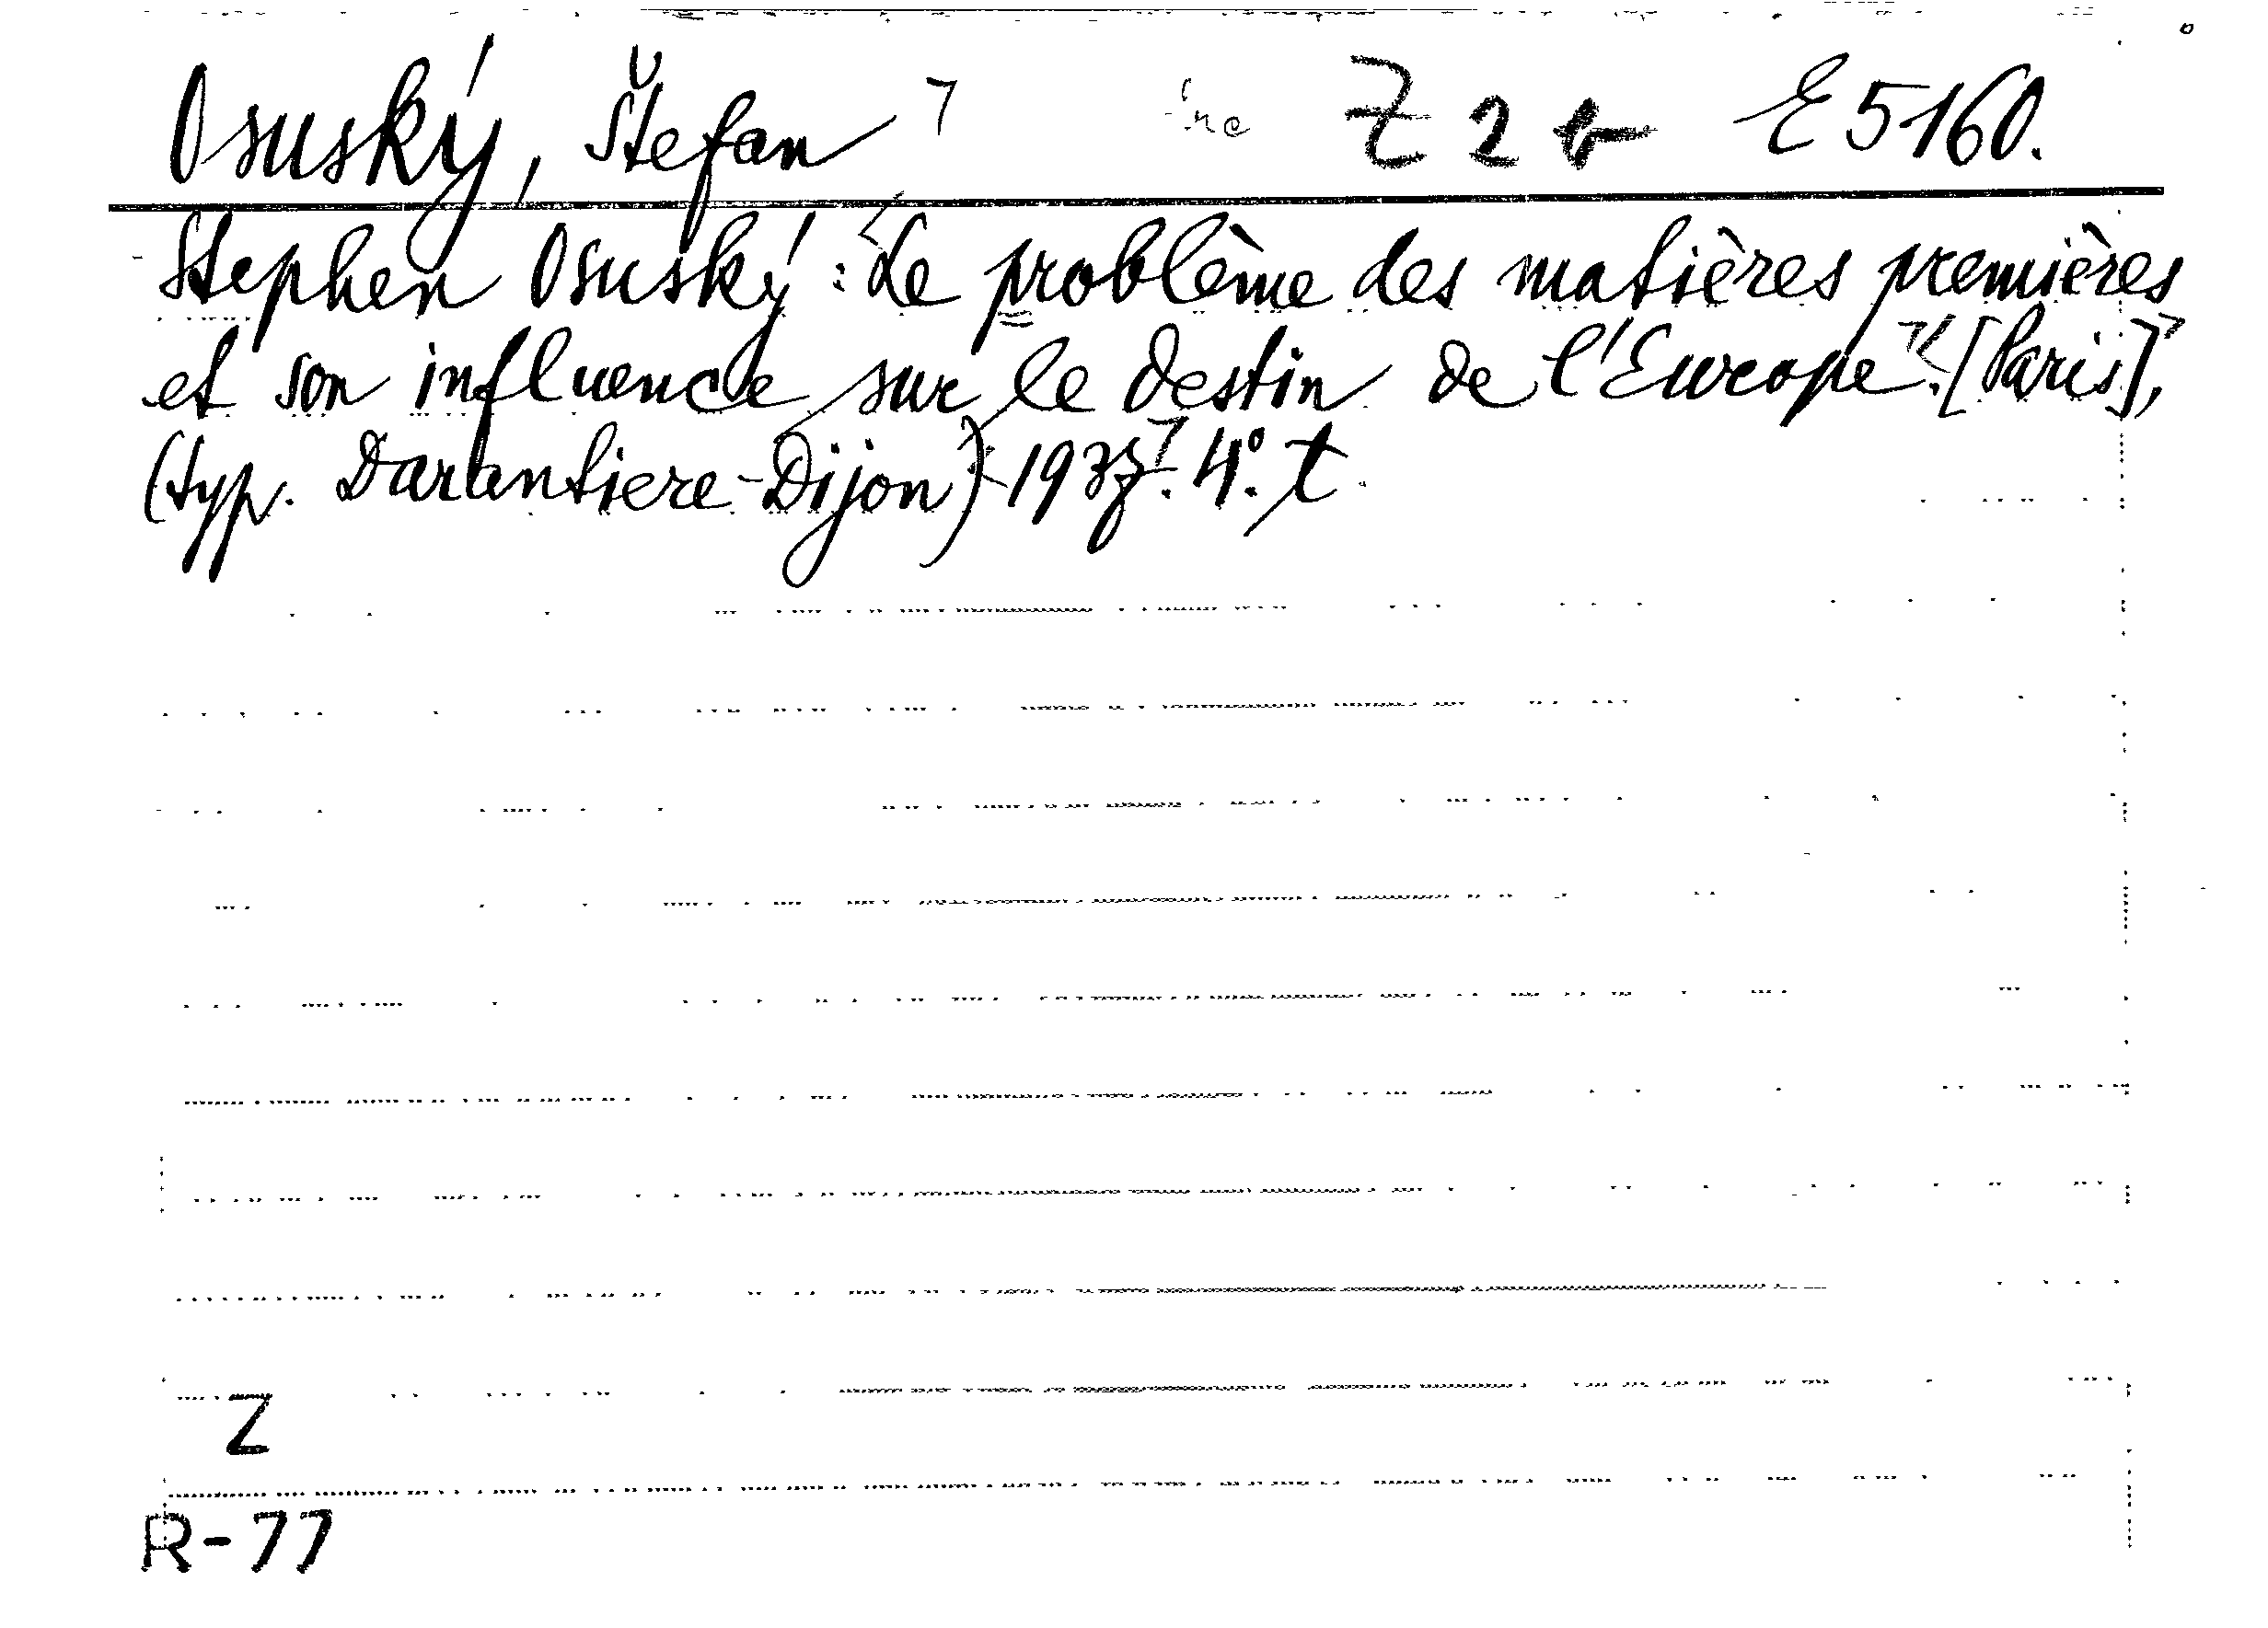 Osuský, Štefan Z 2 E 5160.
Stephen Osuský: Le problème des matières premières
et son influence sur le destin de l'Europe. [Paris],
(typ. Darantiere-Dijon) 1937. 4°. t.
Z
R-77